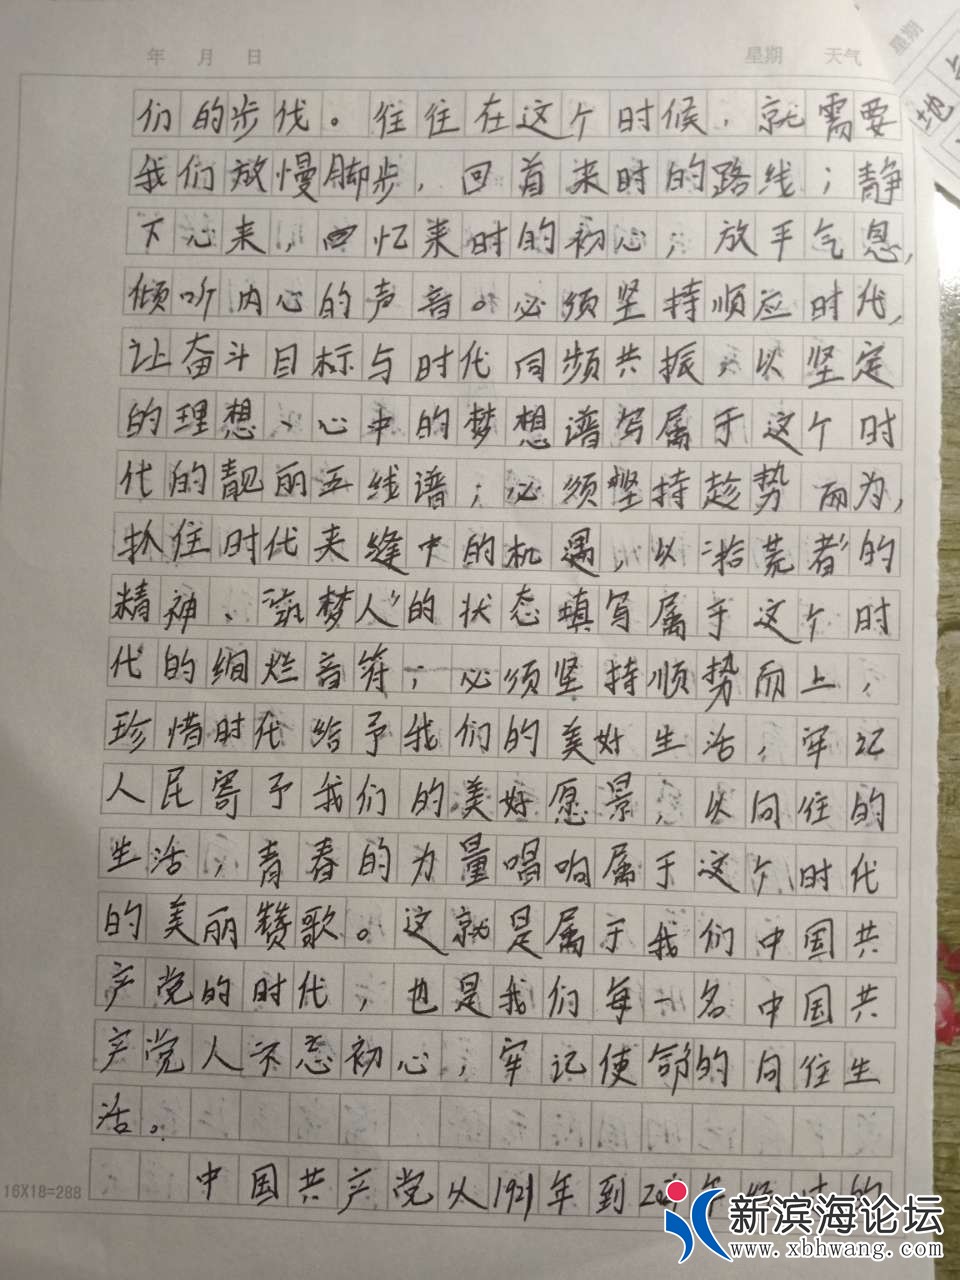 年 月 日 星期 天气
星期
地
们的步伐。往往在这个时候,就需要
我们放慢脚步,回首来时的路线;静
下心来,回忆来时的初心;放手气息,
倾听内心的声音。必须坚持顺应时代,
让奋斗目标与时代同频共振,以坚定
的理想、心中的梦想谱写属于这个时
代的靓丽五线谱;必须坚持趁势而为,
抓住时代夹缝中的机遇,以“拾荒者”的
精神、“筑梦人”的状态填写属于这个时
代的绚烂音符;必须坚持顺势而上,
珍惜时代给予我们的美好生活,牢记
人民寄予我们的美好愿景,以向往的
生活,青春的力量唱响属于这个时代
的美丽赞歌。这就是属于我们中国共
产党的时代,也是我们每一名中国共
产党人不忘初心,牢记使命的向往生
活。
中国共产党从1921年到2021年 的
16X18=288
新滨海论坛
www.xbhwang.com